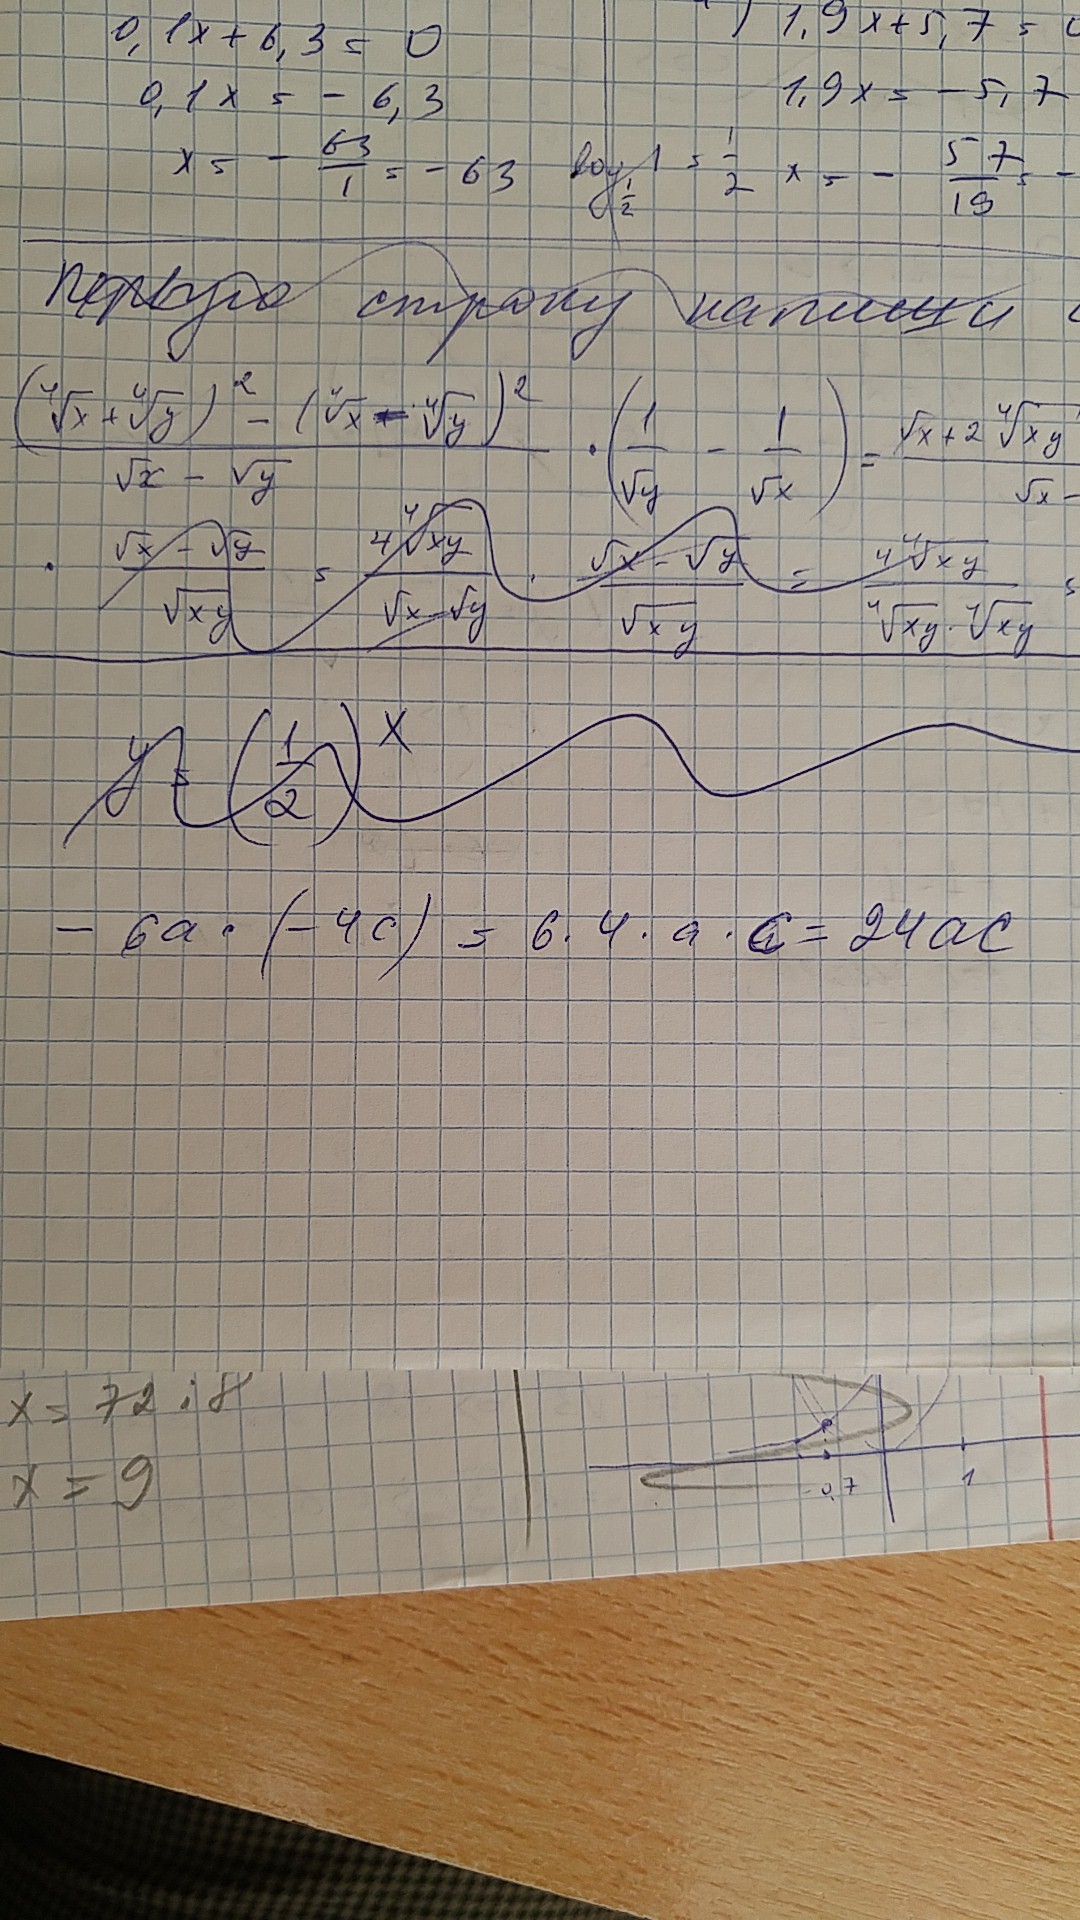 0,1x+6,3=0
1,9x+5,7=0
0,1x=-6,3
1,9x=-5,7
x=-63/1=-63
log_{1/2} 1 = 1/2
x=-57/19=-
Первую строку напиши
((⁴√x+⁴√y)²-(⁴√x-⁴√y)²)/(√x-√y)·(1/√y-1/√x)=(√x+2⁴√xy
√x-
·(√x-√y)/√xy=4⁴√xy/(√x-√y)·(√x-√y)/√xy=4⁴√xy/(⁴√xy·⁴√xy)=
y=(1/2)^x
-6a·(-4c)=6·4·a·c=24ac
x=72:8
x=9
0,7 1